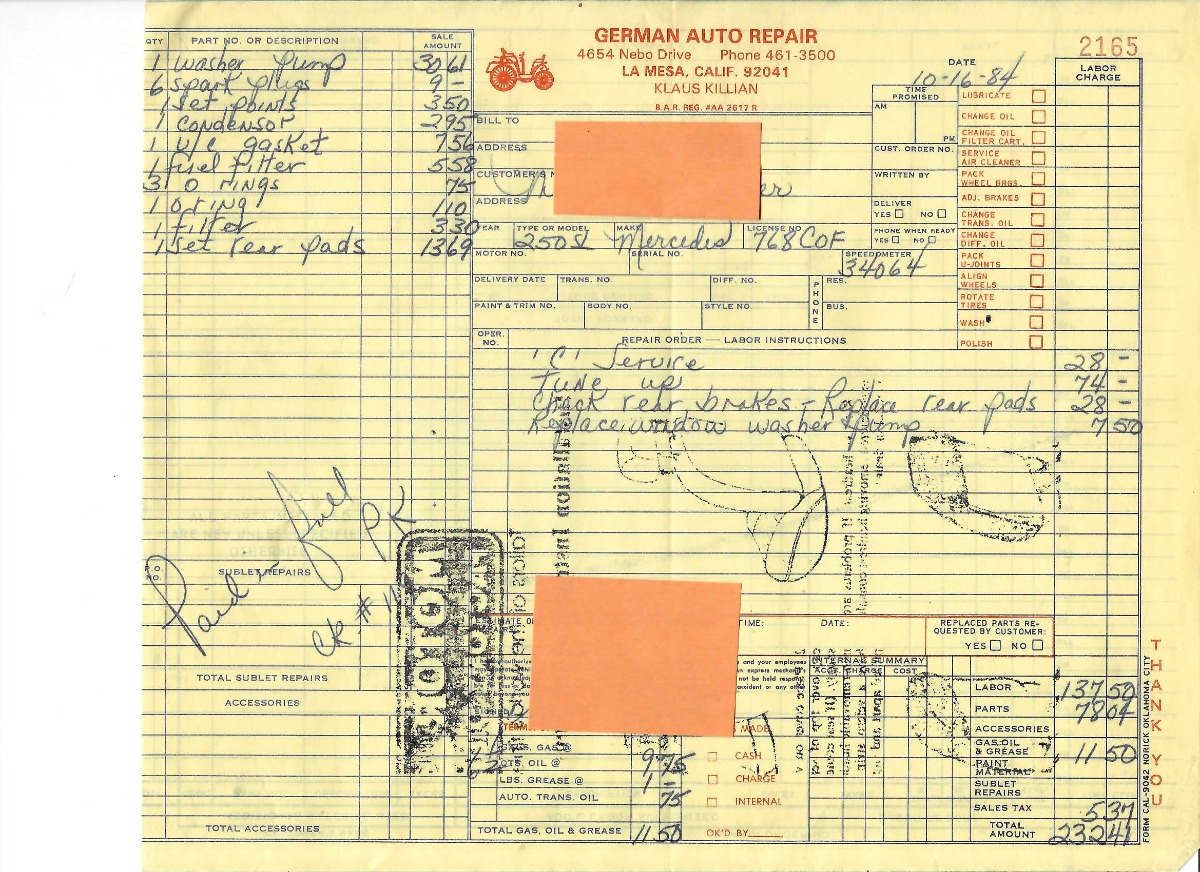 GERMAN AUTO REPAIR
4654 Nebo Drive Phone 461-3500
LA MESA, CALIF. 92041
KLAUS KILLIAN
B.A.R. REG. #AA 2617 R
2165
QTY PART NO. OR DESCRIPTION SALE AMOUNT
1 washer pump 3061
6 spark plugs 9 -
1 set points 350
1 condensor 295
1 v/c gasket 756
1 fuel filter 558
3 o rings 75
1 o ring 110
1 filter 330
1 set rear pads 1369
SUBLET REPAIRS
Paid in full
PK
CK #
TOTAL SUBLET REPAIRS
ACCESSORIES
TOTAL ACCESSORIES
BILL TO
ADDRESS
CUSTOMER'S
ADDRESS
DATE
10-16-84
TIME PROMISED
AM
PM
CUST. ORDER NO.
WRITTEN BY
DELIVER
YES NO
PHONE WHEN READY
YES NO
YEAR TYPE OR MODEL MAKE LICENSE NO.
250SL Mercedes 768COF
MOTOR NO. SERIAL NO. SPEEDOMETER
34064
DELIVERY DATE TRANS. NO. DIFF. NO. PHONE RES.
PAINT & TRIM NO. BODY NO. STYLE NO. BUS.
LABOR CHARGE
LUBRICATE
CHANGE OIL
CHANGE OIL FILTER CART.
SERVICE AIR CLEANER
PACK WHEEL BRGS.
ADJ. BRAKES
CHANGE TRANS. OIL
CHANGE DIFF. OIL
PACK U-JOINTS
ALIGN WHEELS
ROTATE TIRES
WASH
POLISH
OPER. NO. REPAIR ORDER — LABOR INSTRUCTIONS
'C' Service 28 -
Tune up 74 -
Check rear brakes - Replace rear pads 28 -
Replace window washer pump 7 50
TIME: DATE:
REPLACED PARTS REQUESTED BY CUSTOMER:
YES NO
INTERNAL SUMMARY
ACC. CHARGE COST
GALS. GAS @
QTS. OIL @ 9 75
LBS. GREASE @ 1 -
AUTO. TRANS. OIL 75
TOTAL GAS, OIL & GREASE 11 50
CASH
CHARGE
INTERNAL
OK'D BY
LABOR 137 50
PARTS 7804
ACCESSORIES
GAS, OIL & GREASE 11 50
PAINT MATERIAL
SUBLET REPAIRS
SALES TAX 537
TOTAL AMOUNT 23241
THANK YOU
FORM CAL-9042 NORICK OKLAHOMA CITY